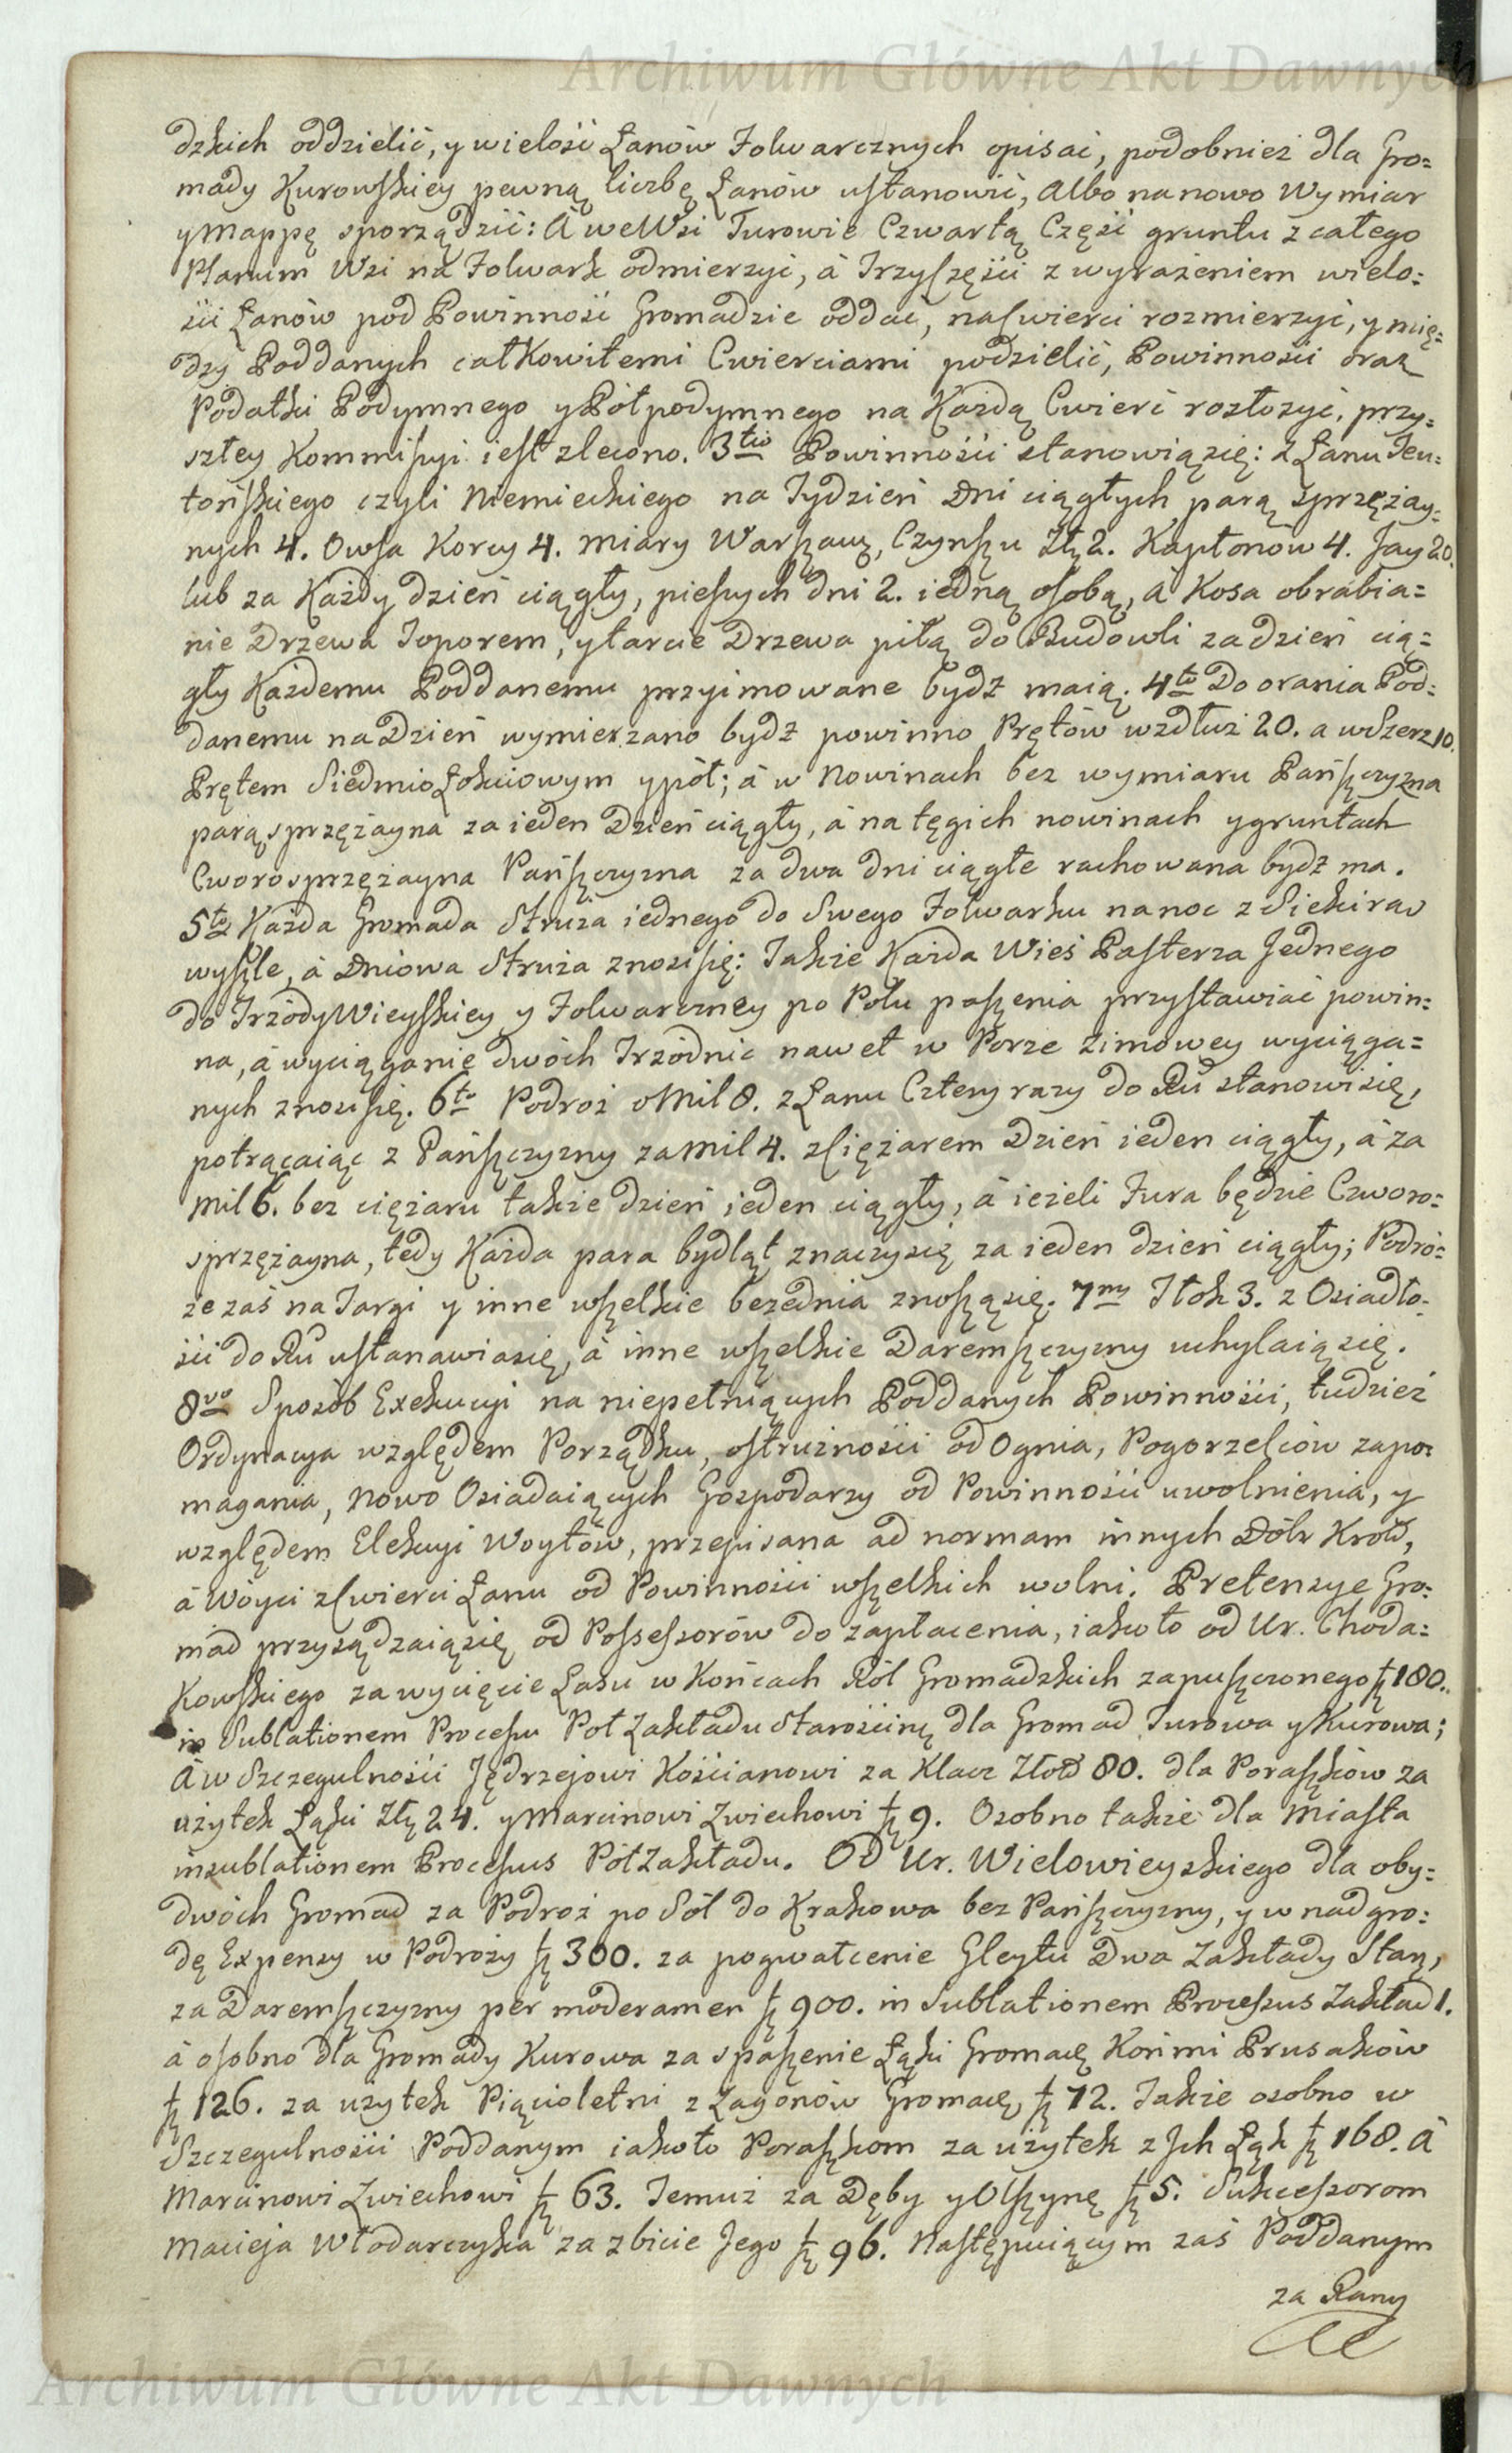 Archiwum Główne Akt Dawnych
dzkich oddzielić, y wielość Łanów Folwarcznych opisać, podobnież dla Gro=
mady Kurowskiey pewną liczbę Łanów ustanowić, Albo na nowo Wymiar
y Mappę sporządzić: Á we Wsi Turowie Czwartą Część gruntu z całego
Planum Wsi na Folwark odmierzyć, á Trzy części z wyrażeniem wielo=
ści Łanów pod Powinność Gromadzie oddać, na Cwierci rozmierzyć, y mię=
dzy Poddanych całkowitemi Cwierciami podzielić, Powinności oraz
Podatki Podymnego y Półpodymnego na Każdą Cwierć rozłożyć, przy=
szłey Kommissyi iest zlecono. 3tio Powinności stanowią się: z Łanu Teu=
tońskiego czyli Niemieckiego na Tydzień Dni ciągłych parą sprzężay=
nych 4. Owsa Korcy 4. miary Warszaw., Czynszu Zł. 2. Kapłonów 4. Jay 20.
lub za Każdy dzień ciągły, pieszych dni 2. iedną osobą, á Kosa obrabia=
nie Drzewa Toporem, y tarcie Drzewa piłą do Budowli za dzień cią=
gły Każdemu Poddanemu przyimowane bydź maią. 4to Do orania Pod=
danemu na Dzień wymierzano bydź powinno Prętów wzdłuż 20. a wszerz 10.
Prętem Siedmiołokciowym y pół; á w Nowinach bez wymiaru Pańszczyzna
parą sprzężayna za ieden Dzień ciągły, á na tęgich nowinach y gruntach
Cworosprzężayna Pańszczyzna za dwa dni ciągłe rachowana bydź ma.
5to Każda Gromada Stróża iednego do Swego Folwarku na noc z Siekirą
wyszle, á Dniowa Struża znosi się: Także Każda Wieś Pasterza Jednego
do Trzody Wieyskiey y Folwarczney po Polu paszenia przystawiać powin=
na, á wyciąganie dwóch Trzódnic nawet w Porze Zimowey wyciąga=
nych znosi się. 6to Podroż o Mil 8. z Łanu Cztery razy do Ru stanowi się,
potrącaiąc z Pańszczyzny za Mil 4. z Ciężarem Dzień ieden ciągły, á za
Mil 6. bez ciężaru także dzień ieden ciągły, á ieżeli Fura będzie Czworo=
sprzężayna, tedy Każda para bydląt znaczy się za ieden dzień ciągły; Podró=
że zaś na Targi y inne wszelkie bezednia znoszą się. 7my Tłok 3. z Osiadło=
ści do Ru ustanawia się, á inne wszelkie Daremszczyzny uchylaią się.
8vo Sposób Exekucyi na niepełniących Poddanych Powinności, tudzież
Ordynacya względem Porządku, ostrożności od Ognia, Pogorzelców zapo=
magania, Nowo Osiadaiących Gospodarzy od Powinności uwolnienia, y
względem Elekcyi Woytów, przepisana ad normam innych Dóbr Król,
á Wóyci z Cwierci Łanu od Powinności wszelkich wolni. Pretensye Gro=
mad przysądzaią się od Possessorów do zapłacenia, iako to od Ur. Choda=
Kowskiego za wycięcie Lasu w Końcach Ról Gromadzkich zapuszczonego zł 180.
in Sublationem Procesu Pół Zakładu Starościnę dla Gromad Turowa y Kurowa;
Á w Szczegulności Jędrzejowi Kościanowi za Klacz Złot 80. dla Poraszków za
użytek Łąki Zł. 24. y Marcinowi Zwiechowi zł 9. Osobno także dla Miasta
in sublationem Processus Pół Zakładu. Od Ur. Wielowieyskiego dla oby=
dwóch Gromad za Podroż po Sól do Krakowa bez Pańszczyzny, y w nadgro=
dę Expensy w Podroży zł 300. za pogwałcenie Gleytu Dwa Zakłady Star,
za Daremszczyzny per moderamen zł 900. in Sublationem Processus Zakład 1.
á osobno dla Gromady Kurowa za spaszenie Łąki Gromadz Końmi Prusaków
zł 126. za użytek Pięcioletni z Zagonów Gromadz zł 72. Także osobno w
Szczegulności Poddanym iako to Poraszkom za użytek z Jch Łąk zł 168. á
Marcinowi Zwiechowi zł 63. Temuż za Dęby y Olszynę zł 5. Sukcessorom
Macieja Włodarczyka za zbicie Jego zł 96. Następuiącym zaś Poddanym
za Rany
Archiwum Główne Akt Dawnych